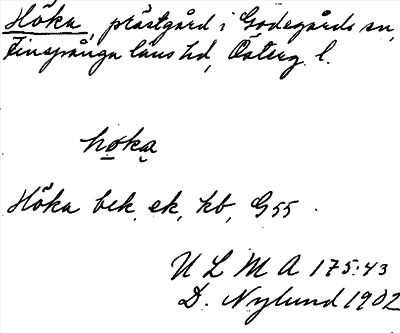 Höka, prästgård i Godegårds sn,
Finspånga läns hd, Österg. l.
höka
Höka bek. ek, kb, G55.
U L M A 175:43
D. Nylund 1902